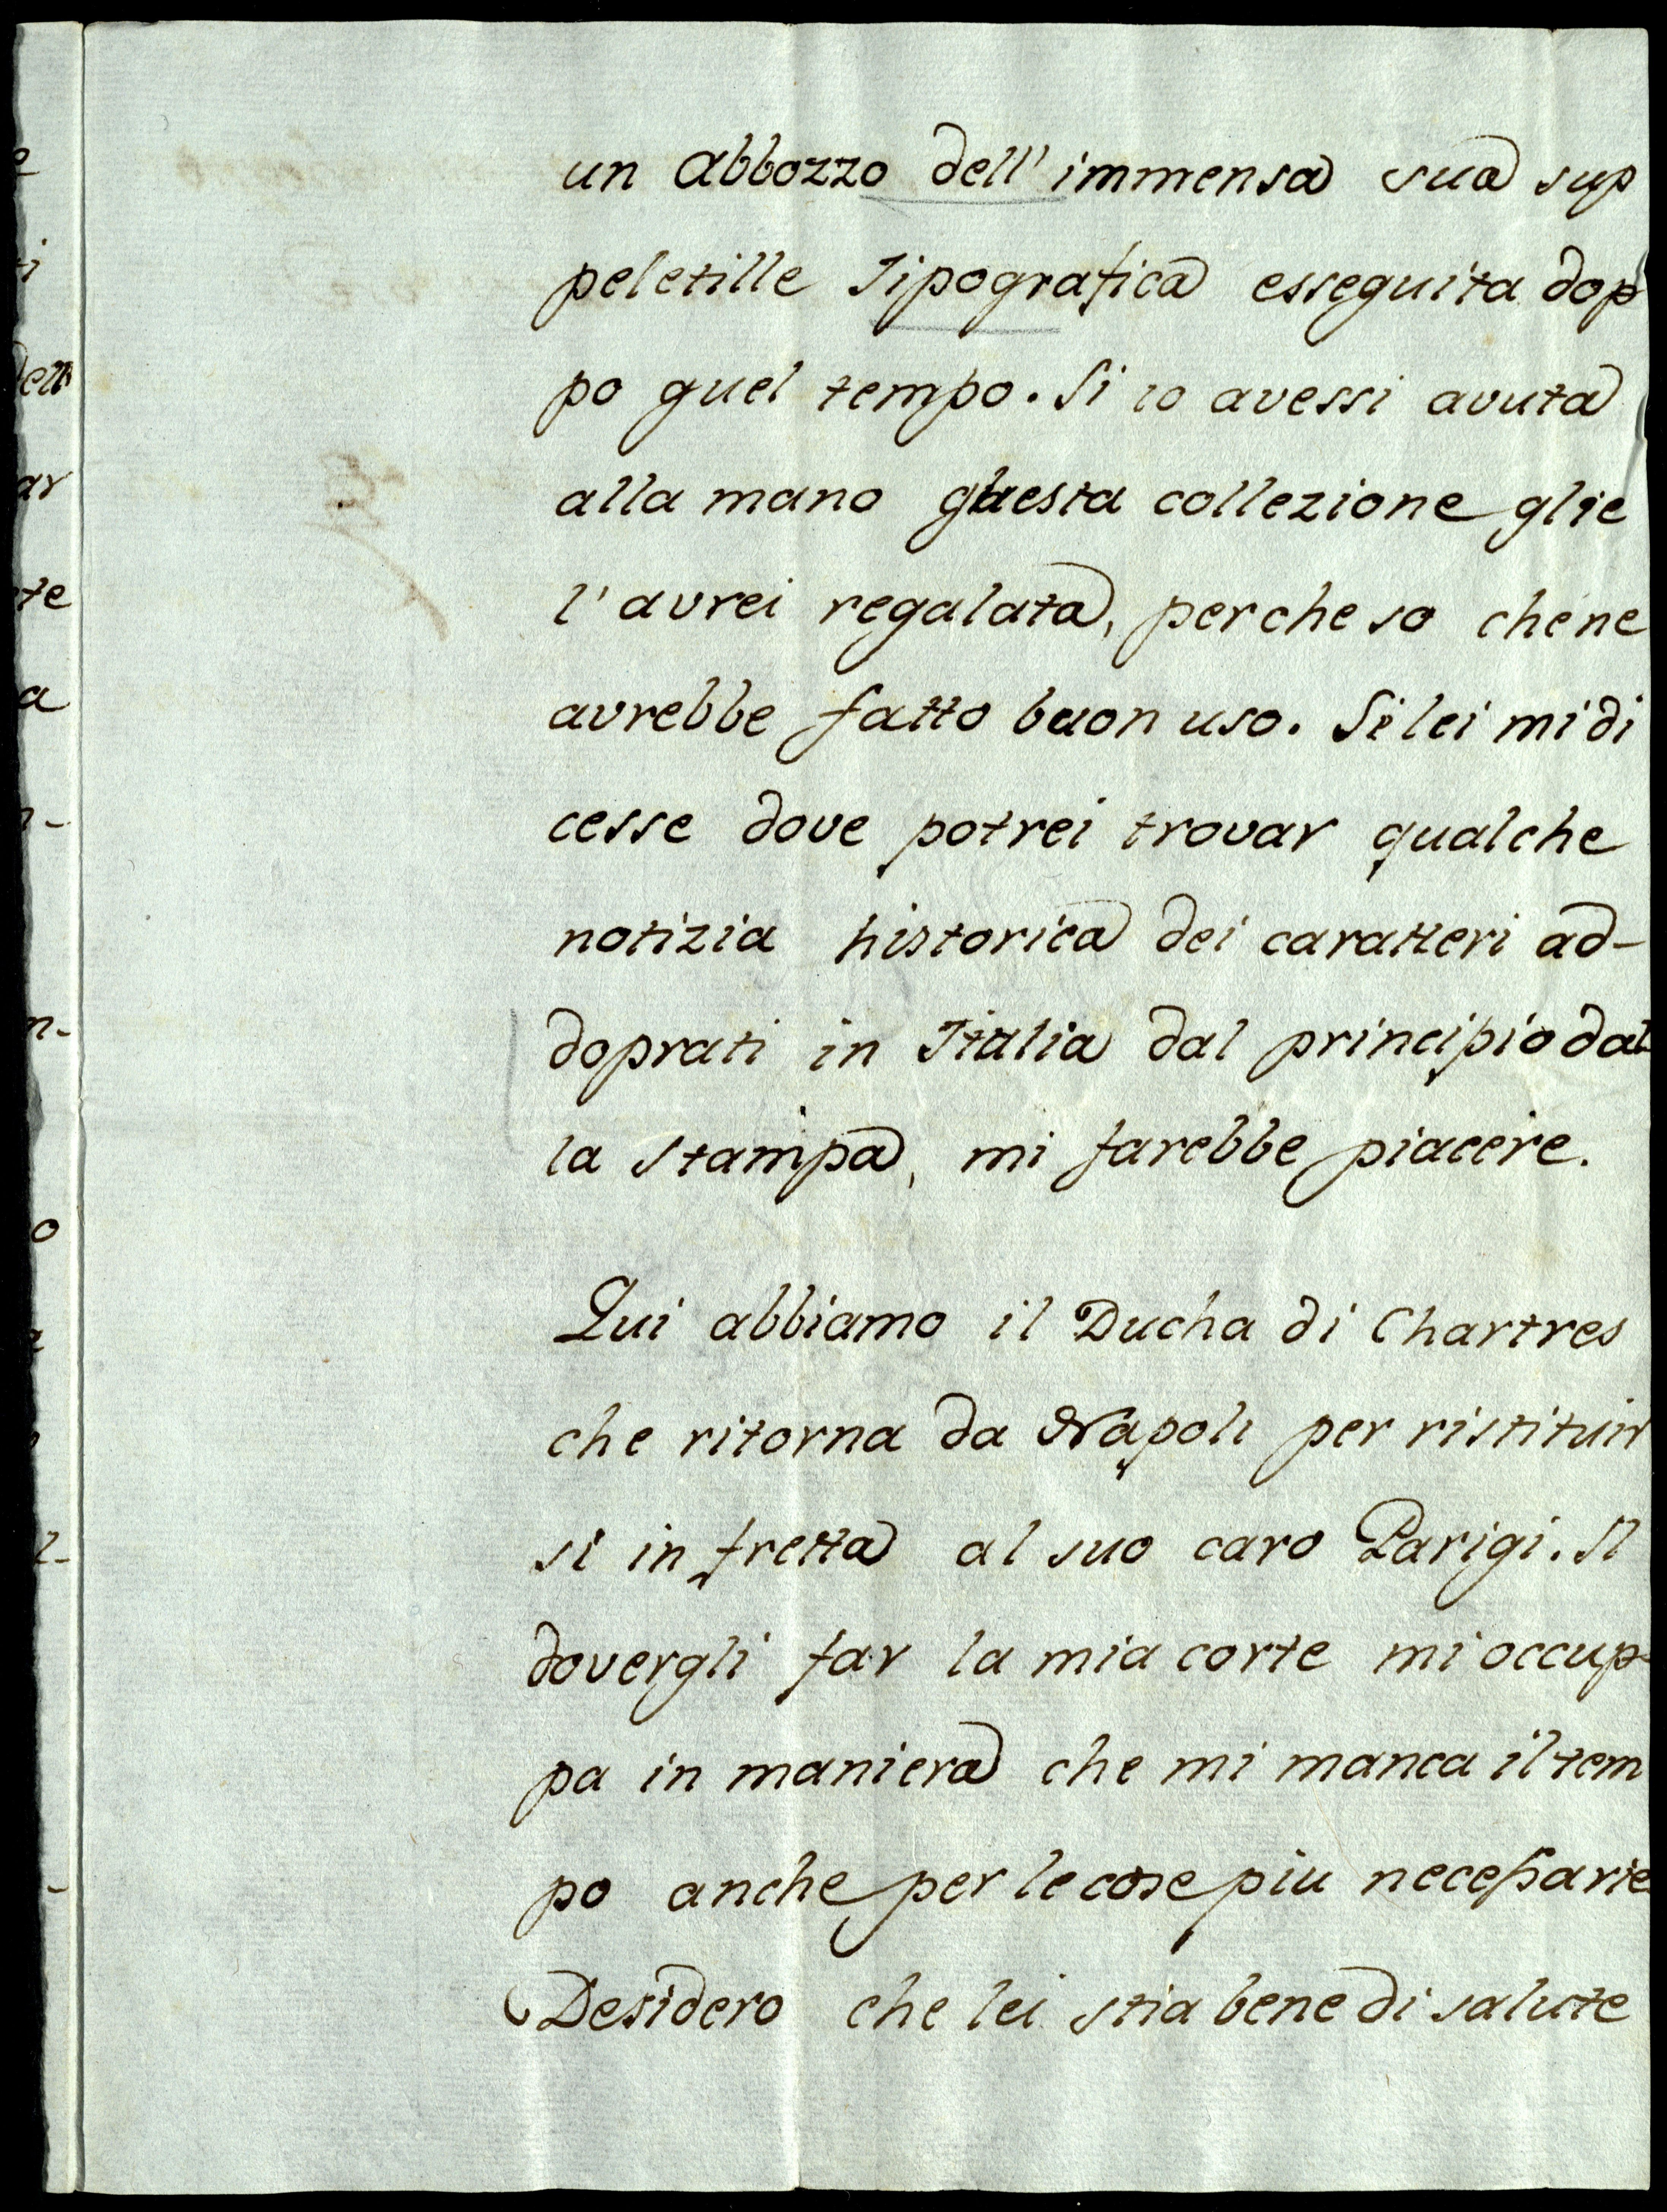 un abbozzo dell'immensa sua sup
peletille Tipografica esseguita dop
po quel tempo. Si io avessi avuta
alla mano questa collezione glie
l'avrei regalata, perche so che ne
avrebbe fatto buon uso. Si lei mi di
cesse dove potrei trovar qualche
notizia historica dei caratteri ad-
doprati in Italia dal principio dal
la stampa, mi farebbe piacere.
Qui abbiamo il Ducha di Chartres
che ritorna da Napoli per ristituir
si in fretta al suo caro Parigi. Il
dovergli far la mia corte mi occup-
pa in maniera che mi manca il tem
po anche per le cose piu necessarie
Desidero che lei stia bene di salute